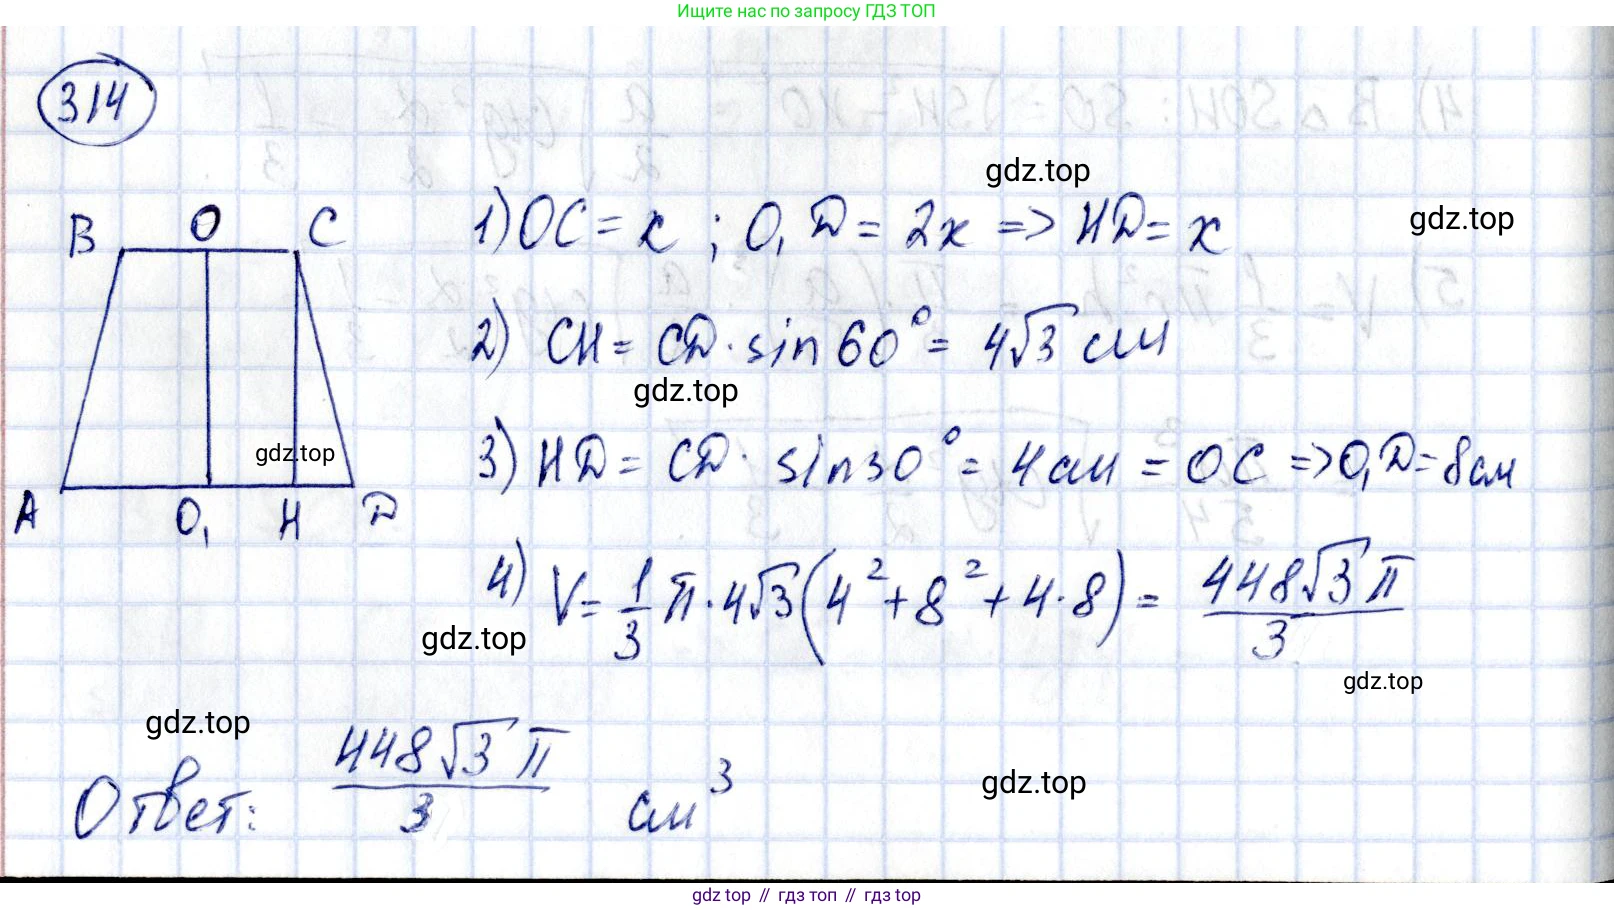 Ищите нас по запросу ГДЗ ТОП
314
gdz.top
B O C
1) OC = x ; O₁D = 2x => HD = x
gdz.top
2) CH = CD · sin 60° = 4√3 см
gdz.top
gdz.top
3) HD = CD · sin 30° = 4 см = OC => O₁D = 8 см
A O₁ H D
4) V = 1/3 π · 4√3 (4² + 8² + 4 · 8) = 448√3 π / 3
gdz.top
gdz.top
gdz.top
Ответ: 448√3 π / 3 см³
gdz.top
gdz top // гдз топ // гдз top